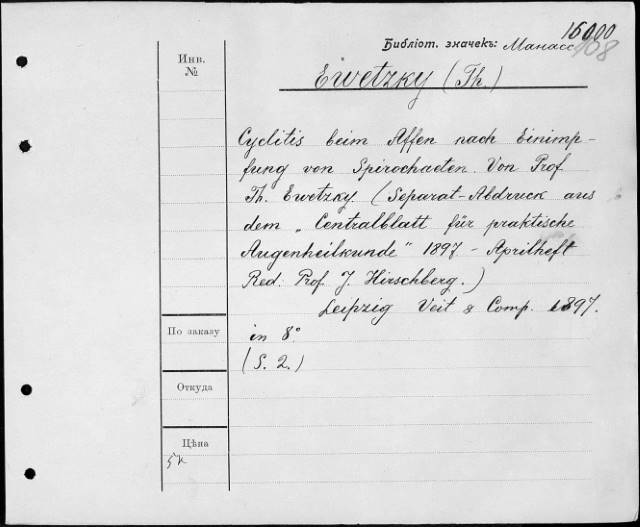 16000
Библіот. значекъ: Манасс 108
Инв.
№
Ewetzky (Th.)
Cyclitis beim Affen nach Einimp-
fung von Spirochaeten. Von Prof.
Th. Ewetzky. (Separat-Abdruck aus
dem „Centralblatt für praktische
Augenheilkunde" 1897 - Aprilheft
Red. Prof. J. Hirschberg.)
Leipzig Veit & Comp. 1897.
По заказу
in 8°
(S. 2.)
Откуда
Цѣна
5к